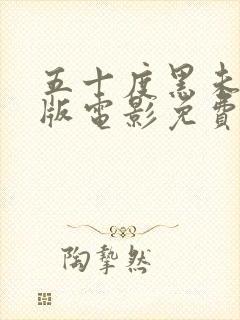 五十度黑未
版電影免費
陶摯然